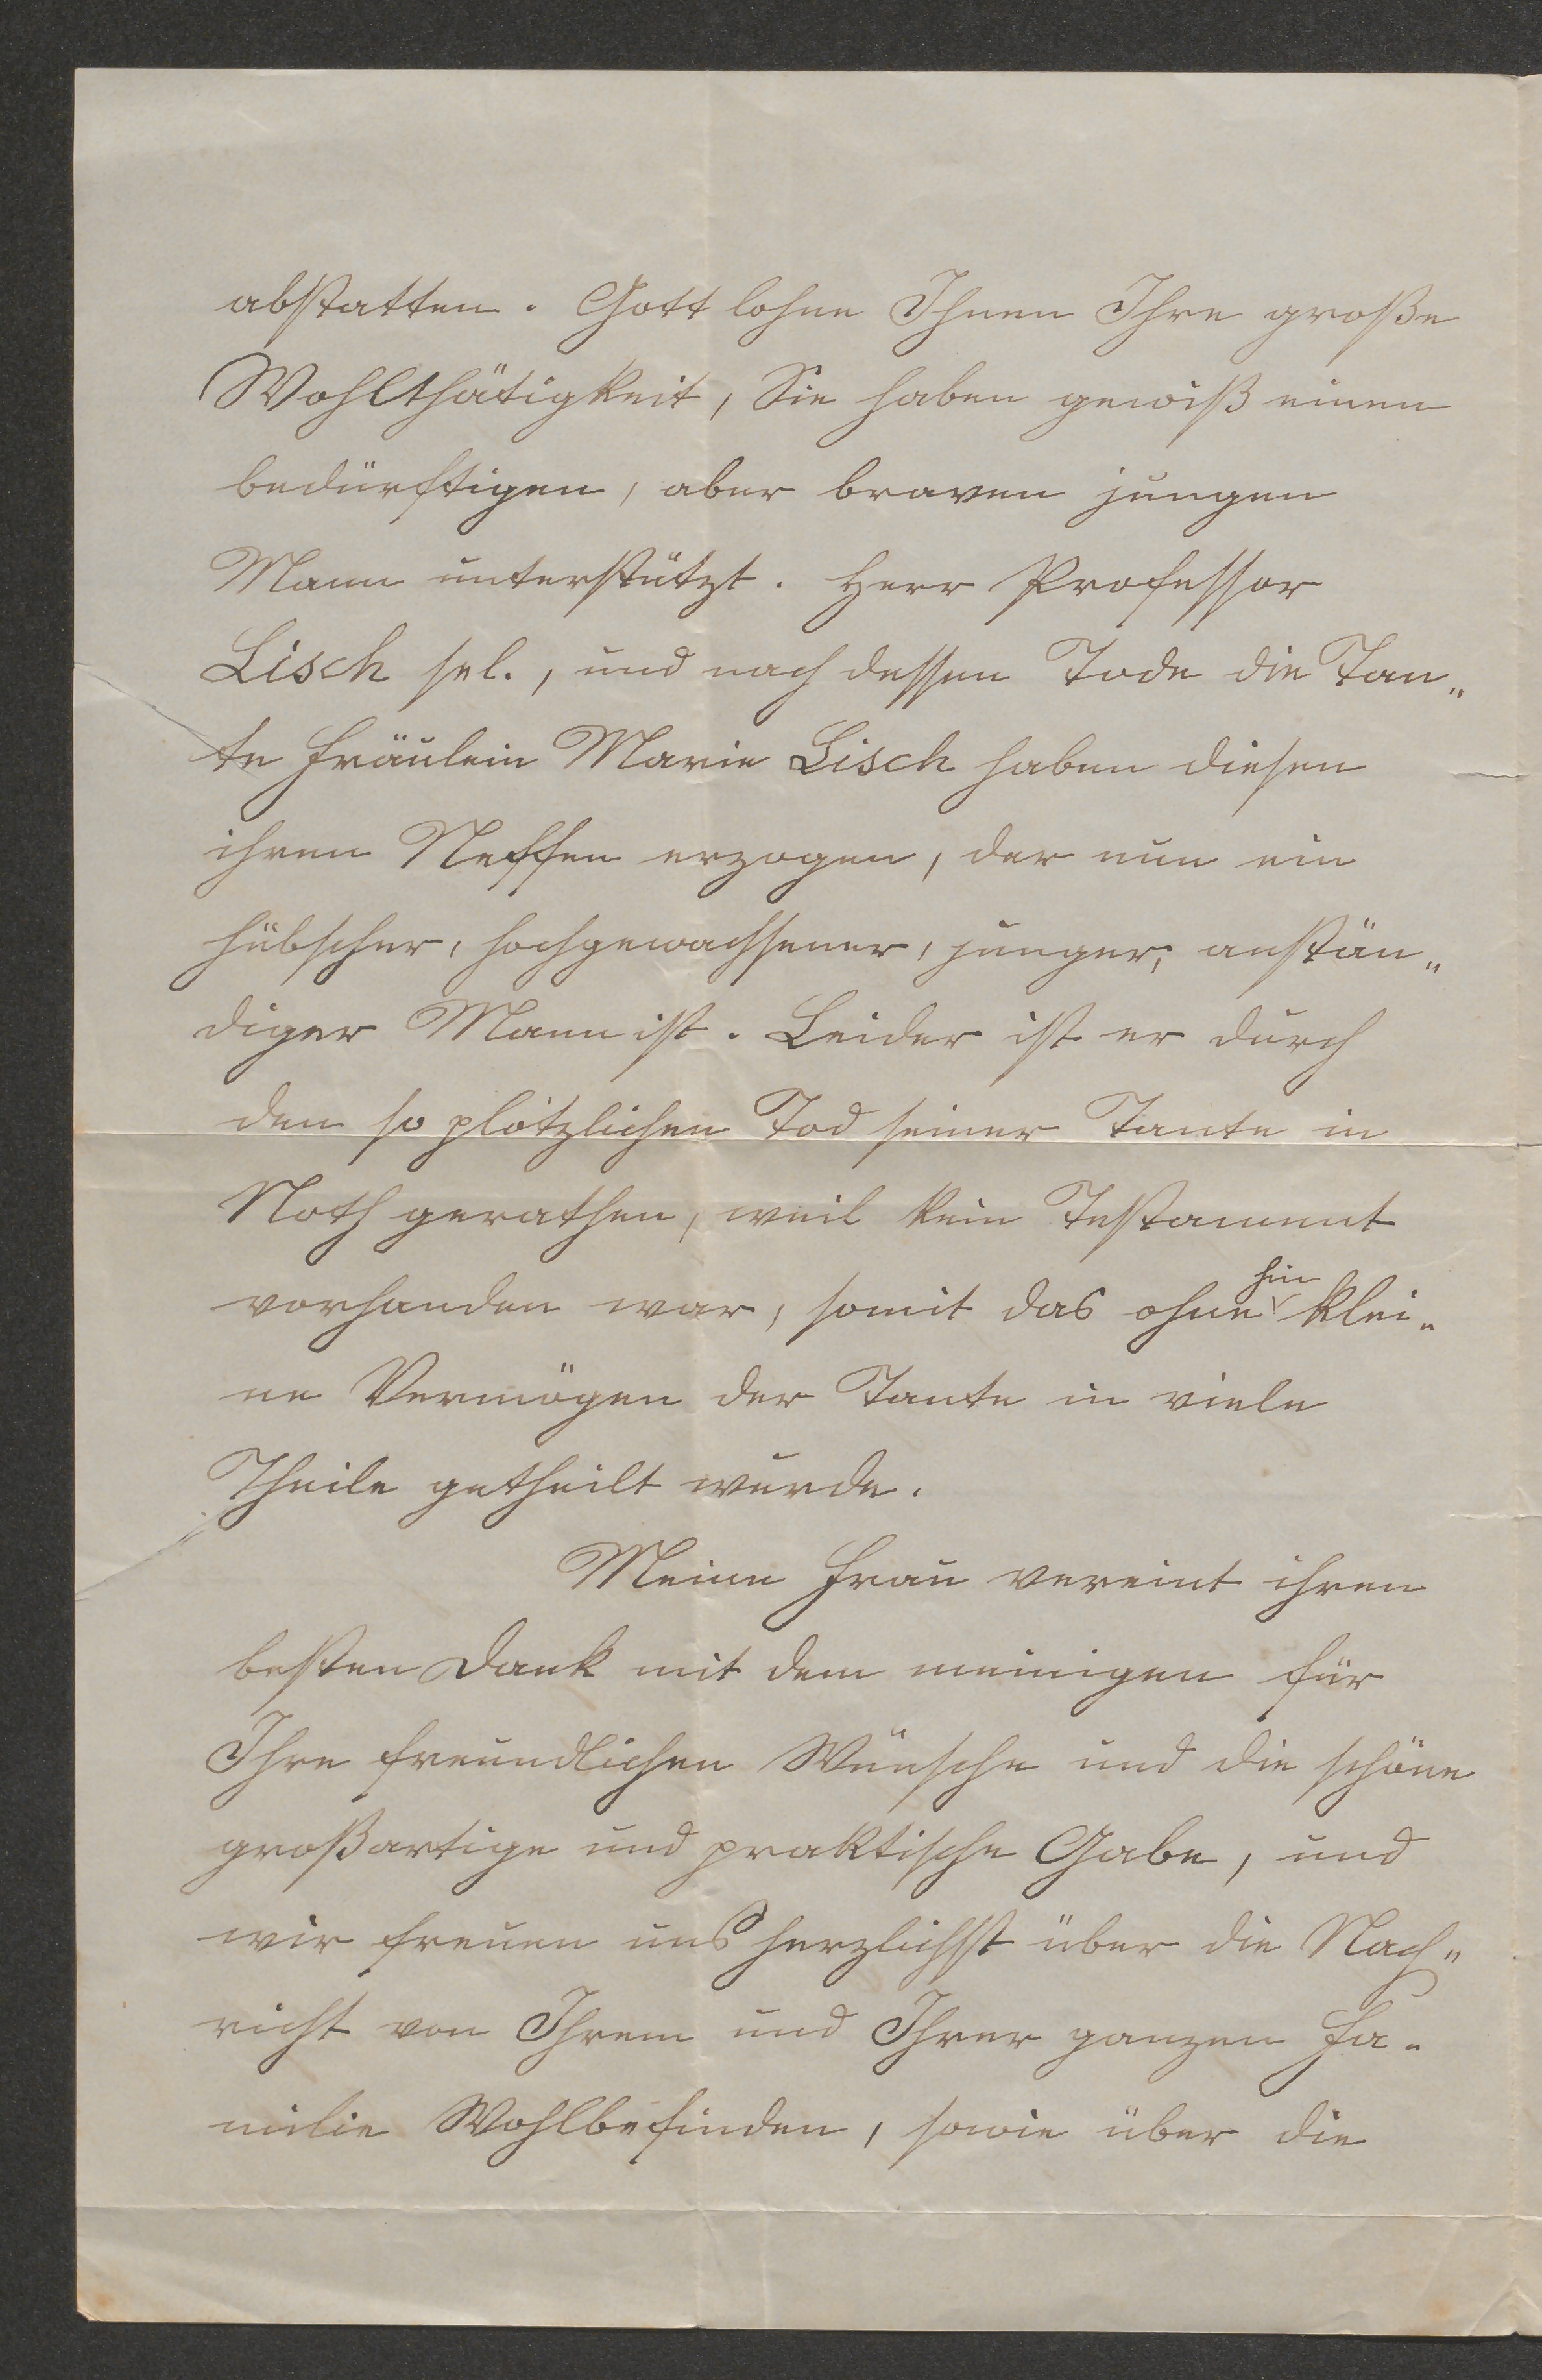 abstatten. Gott lohne Ihnen Ihre große
Wohlthätigkeit, Sie haben gewiß einen
bedürftigen, aber braven jungen
Mann unterstützt. Herr Professor
Lisch sel., und nach dessen Tode die Tan„
te Fräulein Marie Lisch haben diesen
ihren Neffen erzogen, der nun ein
hübscher, hochgewachsener, junger, anstän„
diger Mann ist. Leider ist er durch
den so plötzlichen Tod seiner Tante in
Noth gerathen, weil kein Testament
vorhanden war, somit das ohnehin klei„
ne Vermögen der Tante in viele
Theile getheilt wurde.
Meine Frau vereint ihren
besten Dank mit dem meinigen für
Ihre freundlichen Wünsche und die schöne
großartige und praktische Gabe, und
wir freuen uns herzlichst über die Nach„
richt von Ihrem und Ihrer ganzen Fa„
milie Wohlbefinden, sowie über die